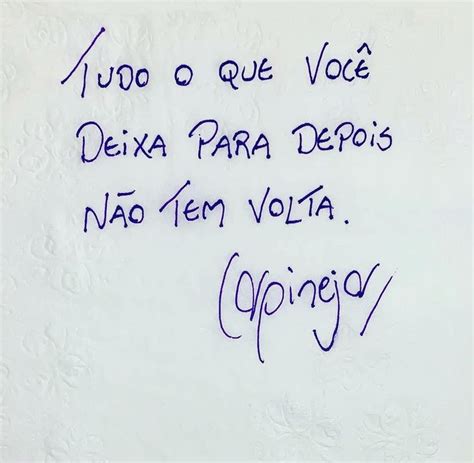 TUDO O QUE VOCÊ
DEIXA PARA DEPOIS
NÃO TEM VOLTA.
Carpinejar